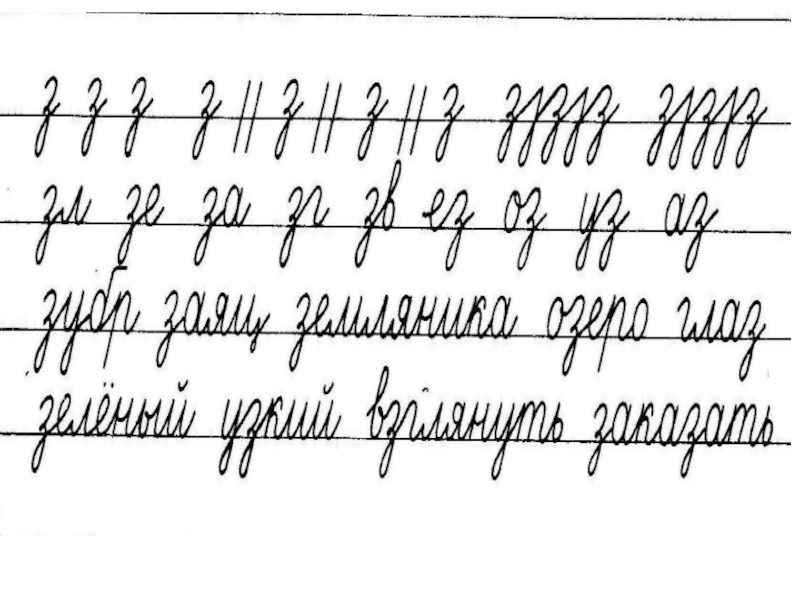 з з з з || з || з || з ззз ззз
зл зе за зг зв ез оз уз аз
зубр заяц земляника озеро глаз
зелёный узкий взглянуть заказать